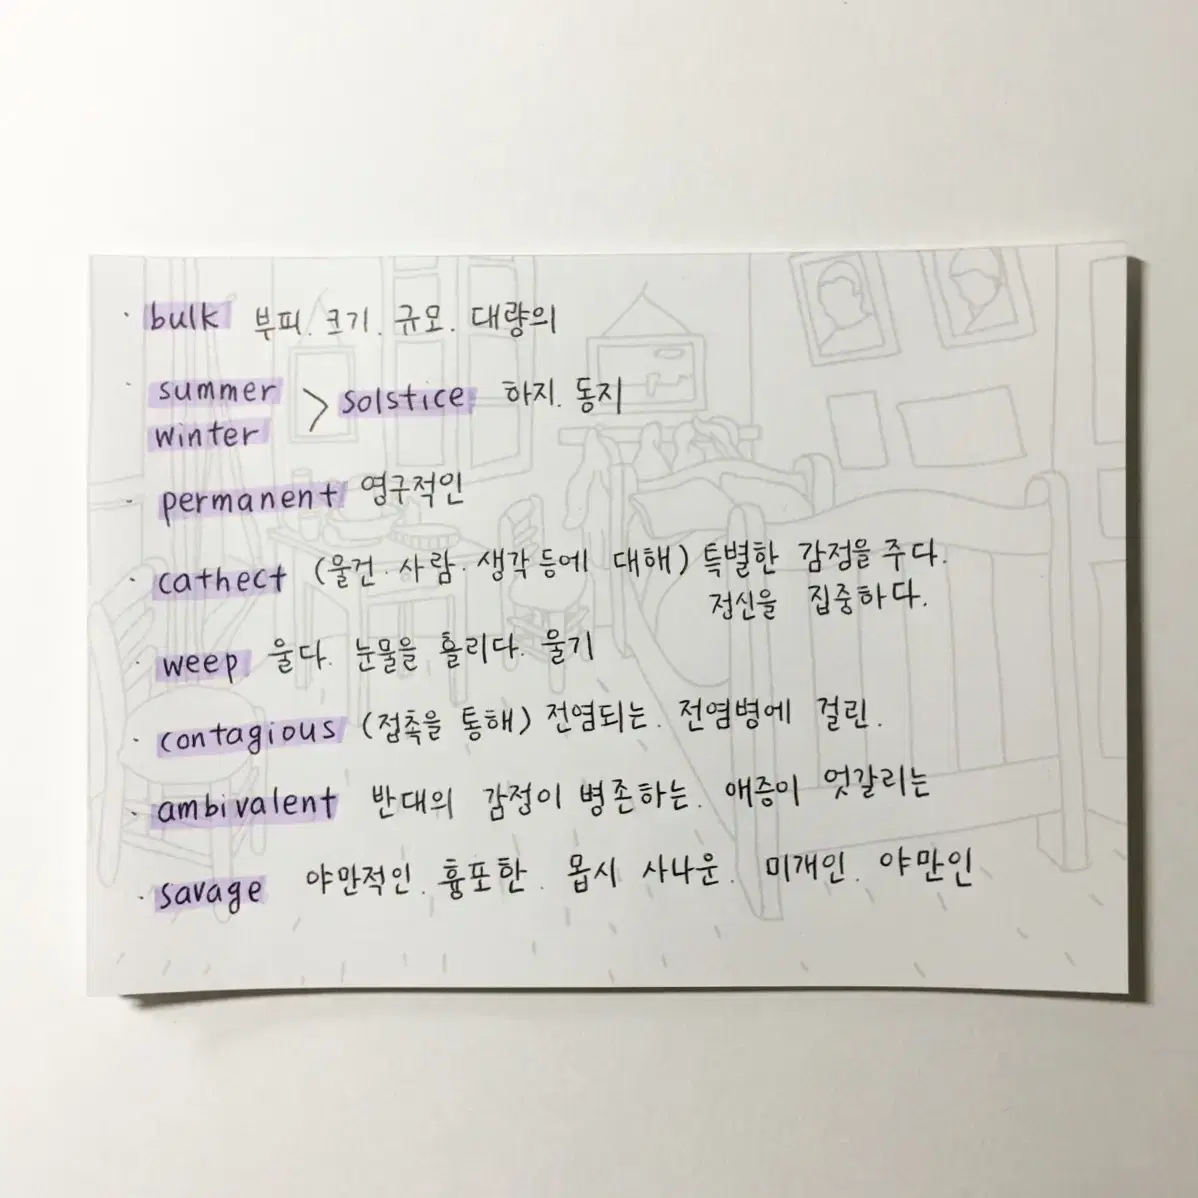 · bulk 부피. 크기. 규모. 대량의
· summer
winter > solstice 하지. 동지
· permanent 영구적인
· cathect (물건·사람·생각 등에 대해) 특별한 감정을 주다.
정신을 집중하다.
· weep 울다. 눈물을 흘리다. 울기
· contagious (접촉을 통해) 전염되는. 전염병에 걸린.
· ambivalent 반대의 감정이 병존하는. 애증이 엇갈리는
· savage 야만적인. 흉포한. 몹시 사나운. 미개인. 야만인